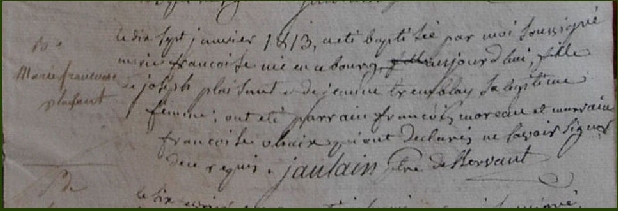 B.
Marie françoise
plaisant
Le dix sept janvier 1813, a été baptisée par moi soussigné
marie francoise née en ce bourg aujourd'hui, fille
de joseph plaisant et de jeanne tremblay sa légitime
femme; ont été parrain francois moreau et marraine
francoise qui ont déclaré ne savoir signer
de ce requis. jaulain ptre de